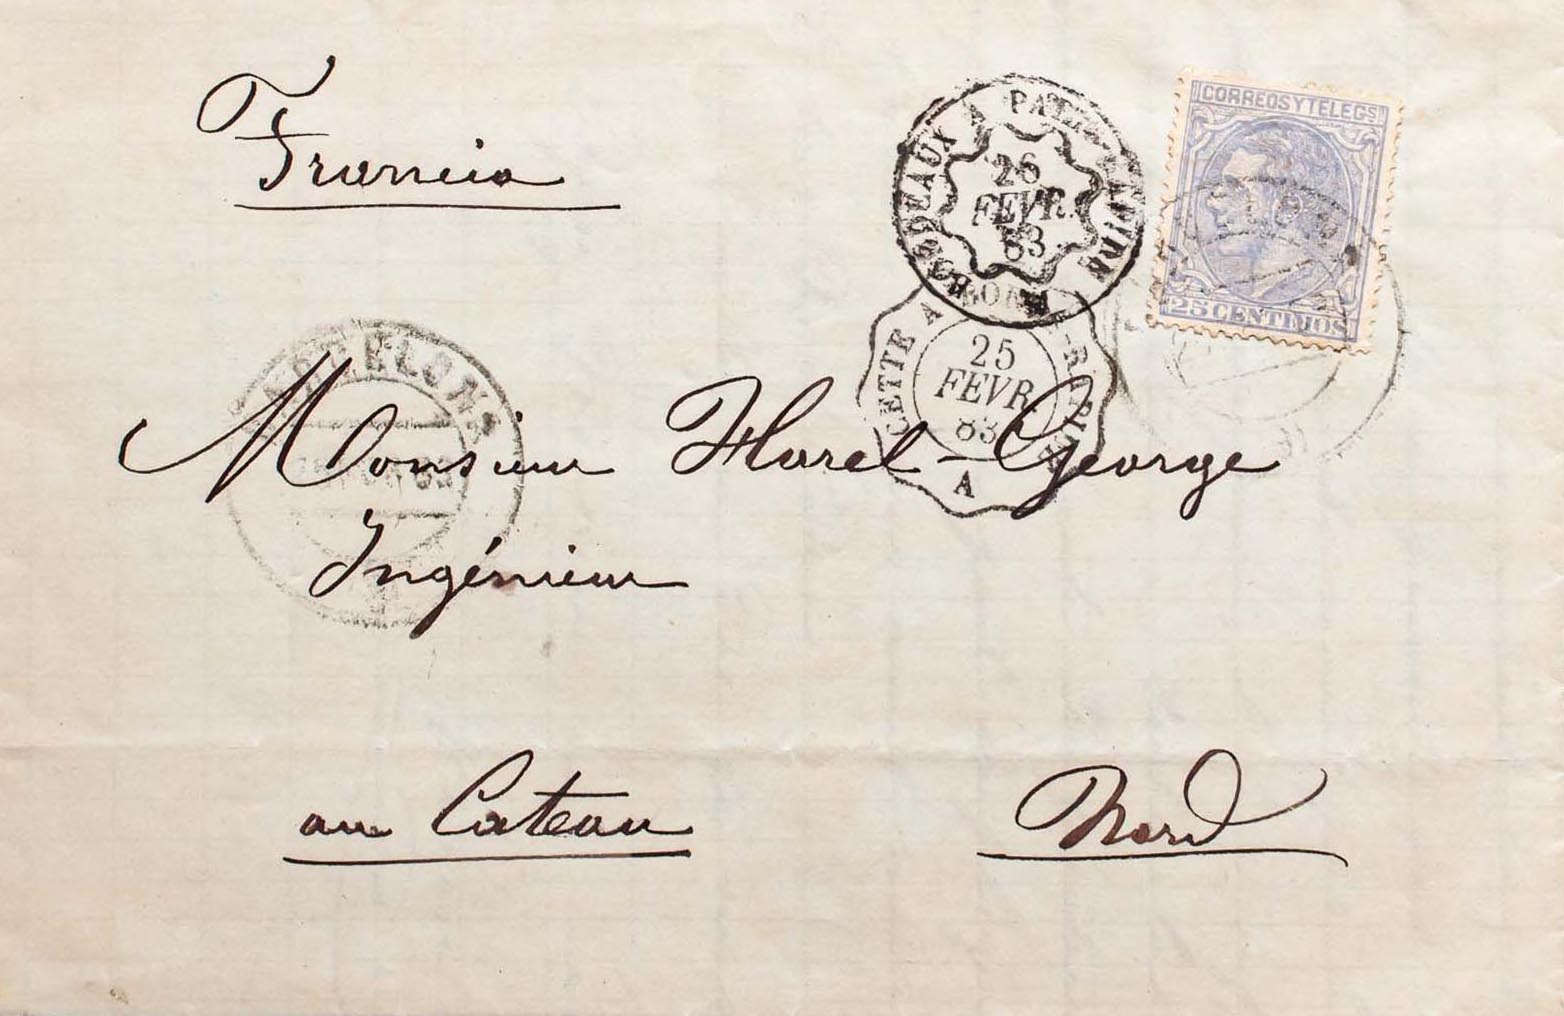 Francia
BORDEAUX A PARIS
26
FEVR.
83
CORREOS Y TELEGS
25 CENTIMOS
CETTE A
25
FEVR.
83
A
BARCELONA
Monsieur Horel-George
Ingénieur
au Cateau
Nord